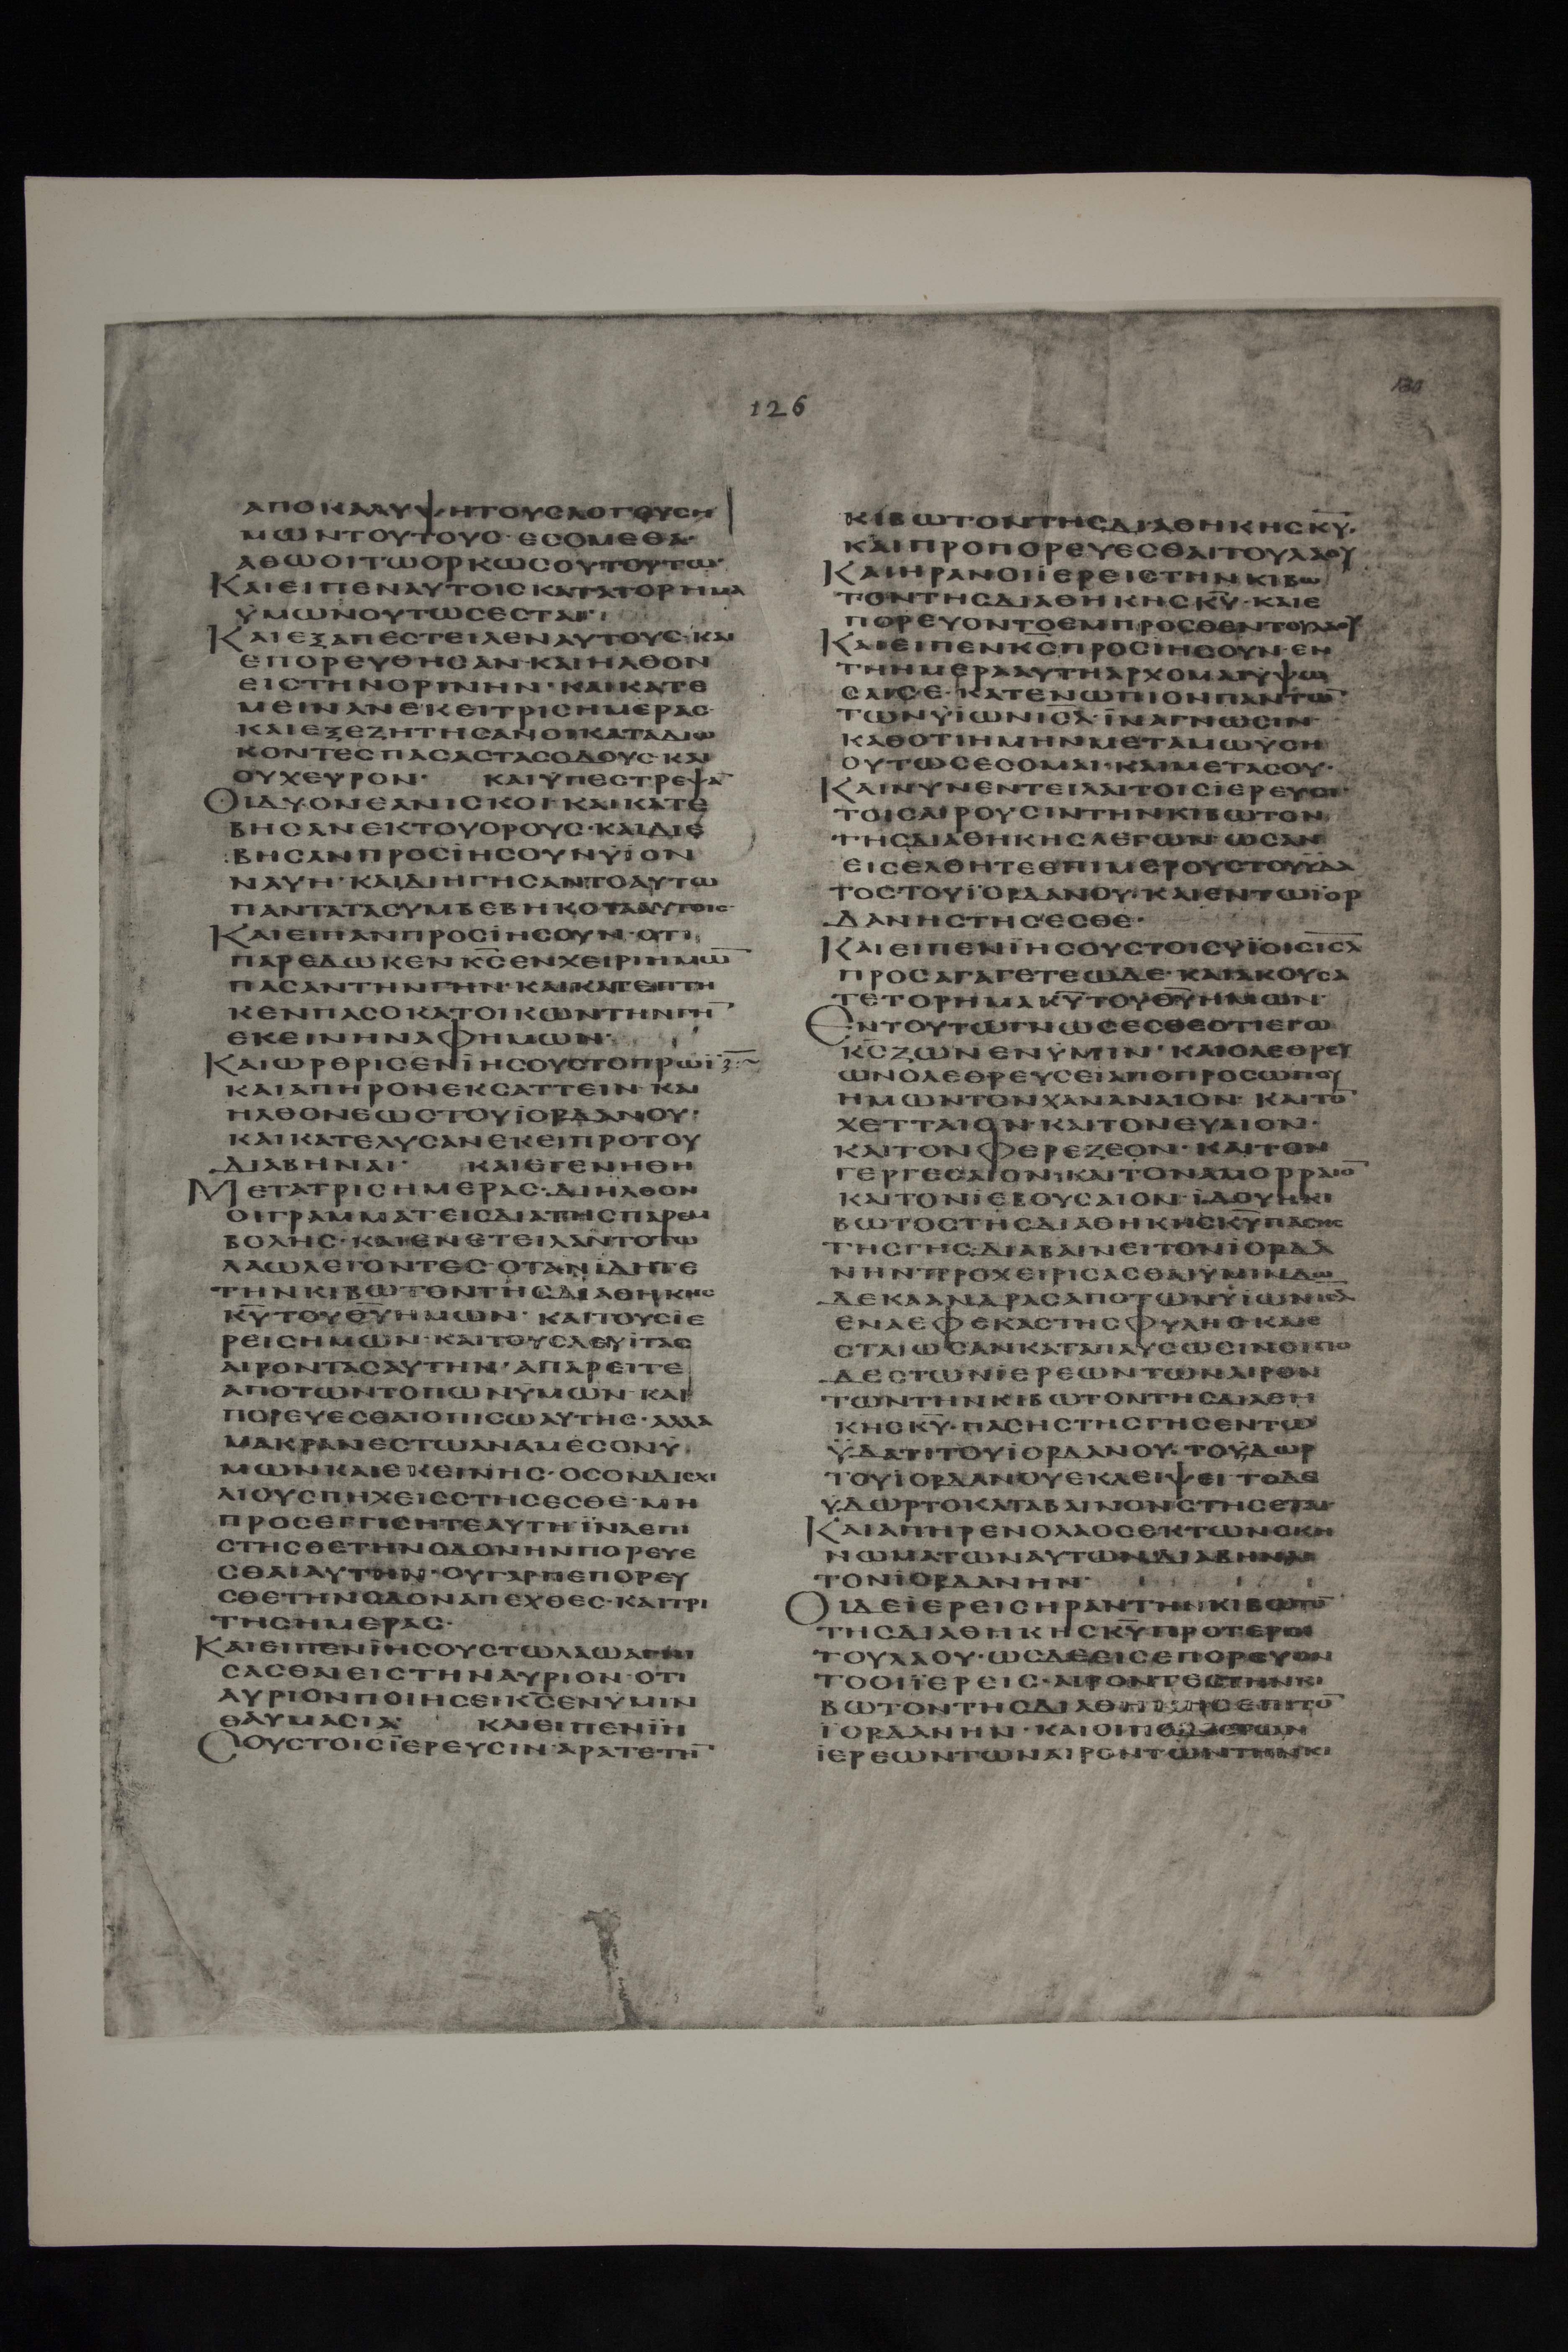 126
130
ΑΠΟΚΑΛΥΨΗΤΟΥΣΛΟΓΟΥΣΗ
ΜΩΝΤΟΥΤΟΥΣ·ΕΣΟΜΕΘΑ
ΑΘΩΟΙΤΩΟΡΚΩΣΟΥΤΟΥΤΩ·
ΚΑΙΕΙΠΕΝΑΥΤΟΙΣΚΑΤΑΤΟΡΗΜΑ
ΫΜΩΝΟΥΤΩΣΕΣΤΑΙ·
ΚΑΙΕΞΑΠΕΣΤΕΙΛΕΝΑΥΤΟΥΣ·ΚΑΙ
ΕΠΟΡΕΥΘΗΣΑΝ·ΚΑΙΗΛΘΟΝ
ΕΙΣΤΗΝΟΡΙΝΗΝ·ΚΑΙΚΑΤΕ
ΜΕΙΝΑΝΕΚΕΙΤΡΙΣΗΜΕΡΑΣ·
ΚΑΙΕΞΕΖΗΤΗΣΑΝΟΙΚΑΤΑΔΙΩ
ΚΟΝΤΕΣΠΑΣΑΣΤΑΣΟΔΟΥΣ·ΚΑΙ
ΟΥΧΕΥΡΟΝ· ΚΑΙΫΠΕΣΤΡΕΨΑ̅
ΟΙΔΥΟΝΕΑΝΙΣΚΟΙ·ΚΑΙΚΑΤΕ
ΒΗΣΑΝΕΚΤΟΥΟΡΟΥΣ·ΚΑΙΔΙΕ
ΒΗΣΑΝΠΡΟΣΪΗΣΟΥΝΫΪΟΝ
ΝΑΥΗ·ΚΑΙΔΙΗΓΗΣΑΝΤΟΑΥΤΩ
ΠΑΝΤΑΤΑΣΥΜΒΕΒΗΚΟΤΑΑΥΤΟΙΣ·
ΚΑΙΕΙΠΑΝΠΡΟΣΪΗΣΟΥΝ·ΟΤΙ
ΠΑΡΕΔΩΚΕΝΚ̅Σ̅ΕΝΧΕΙΡΙΗΜΩ̅
ΠΑΣΑΝΤΗΝΓΗΝ·ΚΑΙΚΑΤΕΠΤΗ
ΚΕΝΠΑΣΟΚΑΤΟΙΚΩΝΤΗΝΓΗ̅
ΕΚΕΙΝΗΝΑΦΗΜΩΝ·
ΚΑΙΩΡΘΡΙΣΕΝΪΗΣΟΥΣΤΟΠΡΩΪ
ΚΑΙΑΠΗΡΟΝΕΚΣΑΤΤΕΙΝ·ΚΑΙ
ΗΛΘΟΝΕΩΣΤΟΥΪΟΡΔΑΝΟΥ·
ΚΑΙΚΑΤΕΛΥΣΑΝΕΚΕΙΠΡΟΤΟΥ
ΔΙΑΒΗΝΑΙ· ΚΑΙΕΓΕΝΗΘΗ
ΜΕΤΑΤΡΙΣΗΜΕΡΑΣ·ΔΙΗΛΘΟΝ
ΟΙΓΡΑΜΜΑΤΕΙΣΔΙΑΤΗΣΠΑΡΕΜ
ΒΟΛΗΣ·ΚΑΙΕΝΕΤΕΙΛΑΝΤΟΤΩ
ΛΑΩΛΕΓΟΝΤΕΣ·ΟΤΑΝΪΔΗΤΕ
ΤΗΝΚΙΒΩΤΟΝΤΗΣΔΙΑΘΗΚΗΣ
Κ̅Υ̅ΤΟΥΘ̅Υ̅ΗΜΩΝ·ΚΑΙΤΟΥΣΙΕ
ΡΕΙΣΗΜΩΝ·ΚΑΙΤΟΥΣΛΕΥΙΤΑΣ
ΑΙΡΟΝΤΑΣΑΥΤΗΝ·ΑΠΑΡΕΙΤΕ
ΑΠΟΤΩΝΤΟΠΩΝΫΜΩΝ·ΚΑΙ
ΠΟΡΕΥΕΣΘΑΙΟΠΙΣΩΑΥΤΗΣ·ΑΛΛΑ
ΜΑΚΡΑΝΕΣΤΩΑΝΑΜΕΣΟΝΫ
ΜΩΝΚΑΙΕΚΕΙΝΗΣ·ΟΣΟΝΔΙΣΧΙ
ΛΙΟΥΣΠΗΧΕΙΣΣΤΗΣΕΣΘΕ·ΜΗ
ΠΡΟΣΕΓΓΙΣΗΤΕΑΥΤΗΪΝΑΕΠΙ
ΣΤΗΣΘΕΤΗΝΟΔΟΝΗΝΠΟΡΕΥΕ
ΣΘΑΙΑΥΤΗΝ·ΟΥΓΑΡΠΕΠΟΡΕΥ
ΣΘΕΤΗΝΟΔΟΝΑΠΕΧΘΕΣ·ΚΑΙΤΡΙ
ΤΗΣΗΜΕΡΑΣ·
ΚΑΙΕΙΠΕΝΪΗΣΟΥΣΤΩΛΑΩΑΓΝΙ
ΣΑΣΘΑΙΕΙΣΤΗΝΑΥΡΙΟΝ·ΟΤΙ
ΑΥΡΙΟΝΠΟΙΗΣΕΙΚ̅Σ̅ΕΝΫΜΙΝ
ΘΑΥΜΑΣΙΑ· ΚΑΙΕΙΠΕΝΪΗ
ΣΟΥΣΤΟΙΣΪΕΡΕΥΣΙΝ·ΑΡΑΤΕΤΗ̅
ΚΙΒΩΤΟΝΤΗΣΔΙΑΘΗΚΗΣΚ̅Υ̅·
ΚΑΙΠΡΟΠΟΡΕΥΕΣΘΑΙΤΟΥΛΑΟΥ
ΚΑΙΗΡΑΝΟΙΪΕΡΕΙΣΤΗΝΚΙΒΩ
ΤΟΝΤΗΣΔΙΑΘΗΚΗΣΚ̅Υ̅·ΚΑΙΕ
ΠΟΡΕΥΟΝΤΟΕΜΠΡΟΣΘΕΝΤΟΥΛΑΟΥ
ΚΑΙΕΙΠΕΝΚ̅Σ̅ΠΡΟΣΪΗΣΟΥΝ·ΕΝ
ΤΗΗΜΕΡΑΑΥΤΗΑΡΧΟΜΑΙΫΨΩ
ΣΑΙΣΕ·ΚΑΤΕΝΩΠΙΟΝΠΑΝΤΩ̅
ΤΩΝΫΙΩΝΙ̅Σ̅Λ̅·ΪΝΑΓΝΩΣΙΝ
ΚΑΘΟΤΙΗΜΗΝΜΕΤΑΜΩΫΣΗ
ΟΥΤΩΣΕΣΟΜΑΙ·ΚΑΙΜΕΤΑΣΟΥ·
ΚΑΙΝΥΝΕΝΤΕΙΛΑΙΤΟΙΣΪΕΡΕΥΣΙ·
ΤΟΙΣΑΙΡΟΥΣΙΝΤΗΝΚΙΒΩΤΟΝ
ΤΗΣΔΙΑΘΗΚΗΣΛΕΓΩΝ·ΩΣΑΝ
ΕΙΣΕΛΘΗΤΕΕΠΙΜΕΡΟΥΣΤΟΥΫΔΑ
ΤΟΣΤΟΥΪΟΡΔΑΝΟΥ·ΚΑΙΕΝΤΩΪΟΡ
ΔΑΝΗΣΤΗΣΕΣΘΕ·
ΚΑΙΕΙΠΕΝΪΗΣΟΥΣΤΟΙΣΫΪΟΙΣΙ̅Σ̅Λ̅
ΠΡΟΣΑΓΑΓΕΤΕΩΔΕ·ΚΑΙΑΚΟΥΣΑ
ΤΕΤΟΡΗΜΑΚ̅Υ̅ΤΟΥΘ̅Υ̅ΗΜΩΝ·
ΕΝΤΟΥΤΩΓΝΩΣΕΣΘΕΟΤΙΕΓΩ
Κ̅Σ̅ΖΩΝΕΝΫΜΙΝ·ΚΑΙΟΛΕΘΡΕΥ
ΩΝΟΛΕΘΡΕΥΣΕΙΑΠΟΠΡΟΣΩΠΟΥ
ΗΜΩΝΤΟΝΧΑΝΑΝΑΙΟΝ·ΚΑΙΤΟ̅
ΧΕΤΤΑΙΟΝ·ΚΑΙΤΟΝΕΥΑΙΟΝ·
ΚΑΙΤΟΝΦΕΡΕΖΕΟΝ·ΚΑΙΤΟΝ
ΓΕΡΓΕΣΑΙΟΝ·ΚΑΙΤΟΝΑΜΟΡΡΑΙΟ̅
ΚΑΙΤΟΝΪΕΒΟΥΣΑΙΟΝ·ΪΔΟΥΗΚΙ
ΒΩΤΟΣΤΗΣΔΙΑΘΗΚΗΣΚ̅Υ̅ΠΑΣΗΣ
ΤΗΣΓΗΣ·ΔΙΑΒΑΙΝΕΙΤΟΝΪΟΡΔΑ
ΝΗΝΠΡΟΧΕΙΡΙΣΑΣΘΑΙΫΜΙΝΔΩ
ΔΕΚΑΑΝΔΡΑΣΑΠΟΤΩΝΫΪΩΝΙ̅Σ̅Λ̅
ΕΝΑΕΦΕΚΑΣΤΗΣΦΥΛΗΣ·ΚΑΙΕ
ΣΤΑΙΩΣΑΝΚΑΤΑΠΑΥΣΩΣΙΝΟΙΠΟ
ΔΕΣΤΩΝΪΕΡΕΩΝΤΩΝΑΙΡΟΝ
ΤΩΝΤΗΝΚΙΒΩΤΟΝΤΗΣΔΙΑΘΗ
ΚΗΣΚ̅Υ̅·ΠΑΣΗΣΤΗΣΓΗΣΕΝΤΩ
ΫΔΑΤΙΤΟΥΪΟΡΔΑΝΟΥ·ΤΟΫΔΩΡ
ΤΟΥΪΟΡΔΑΝΟΥΕΚΛΕΙΨΕΙ·ΤΟΔΕ
ΫΔΩΡΤΟΚΑΤΑΒΑΙΝΟΝΣΤΗΣΕΤΑΙ·
ΚΑΙΑΠΗΡΕΝΟΛΑΟΣΕΚΤΩΝΣΚΗ
ΝΩΜΑΤΩΝΑΥΤΩΝΔΙΑΒΗΝΑΙ
ΤΟΝΪΟΡΔΑΝΗΝ·
ΟΙΔΕΪΕΡΕΙΣΗΡΑΝΤΗΝΚΙΒΩΤΟ̅
ΤΗΣΔΙΑΘΗΚΗΣΚ̅Υ̅ΠΡΟΤΕΡΟΙ
ΤΟΥΛΑΟΥ·ΩΣΔΕΕΙΣΕΠΟΡΕΥΟΝ
ΤΟΟΙΪΕΡΕΙΣ·ΑΙΡΟΝΤΕΣΤΗΝΚΙ
ΒΩΤΟΝΤΗΣΔΙΑΘΗΚΗΣΕΠΙΤΟ̅
ΪΟΡΔΑΝΗΝ·ΚΑΙΟΙΠΟΔΕΣΤΩΝ
ΪΕΡΕΩΝΤΩΝΑΙΡΟΝΤΩΝΤΗΝΚΙ